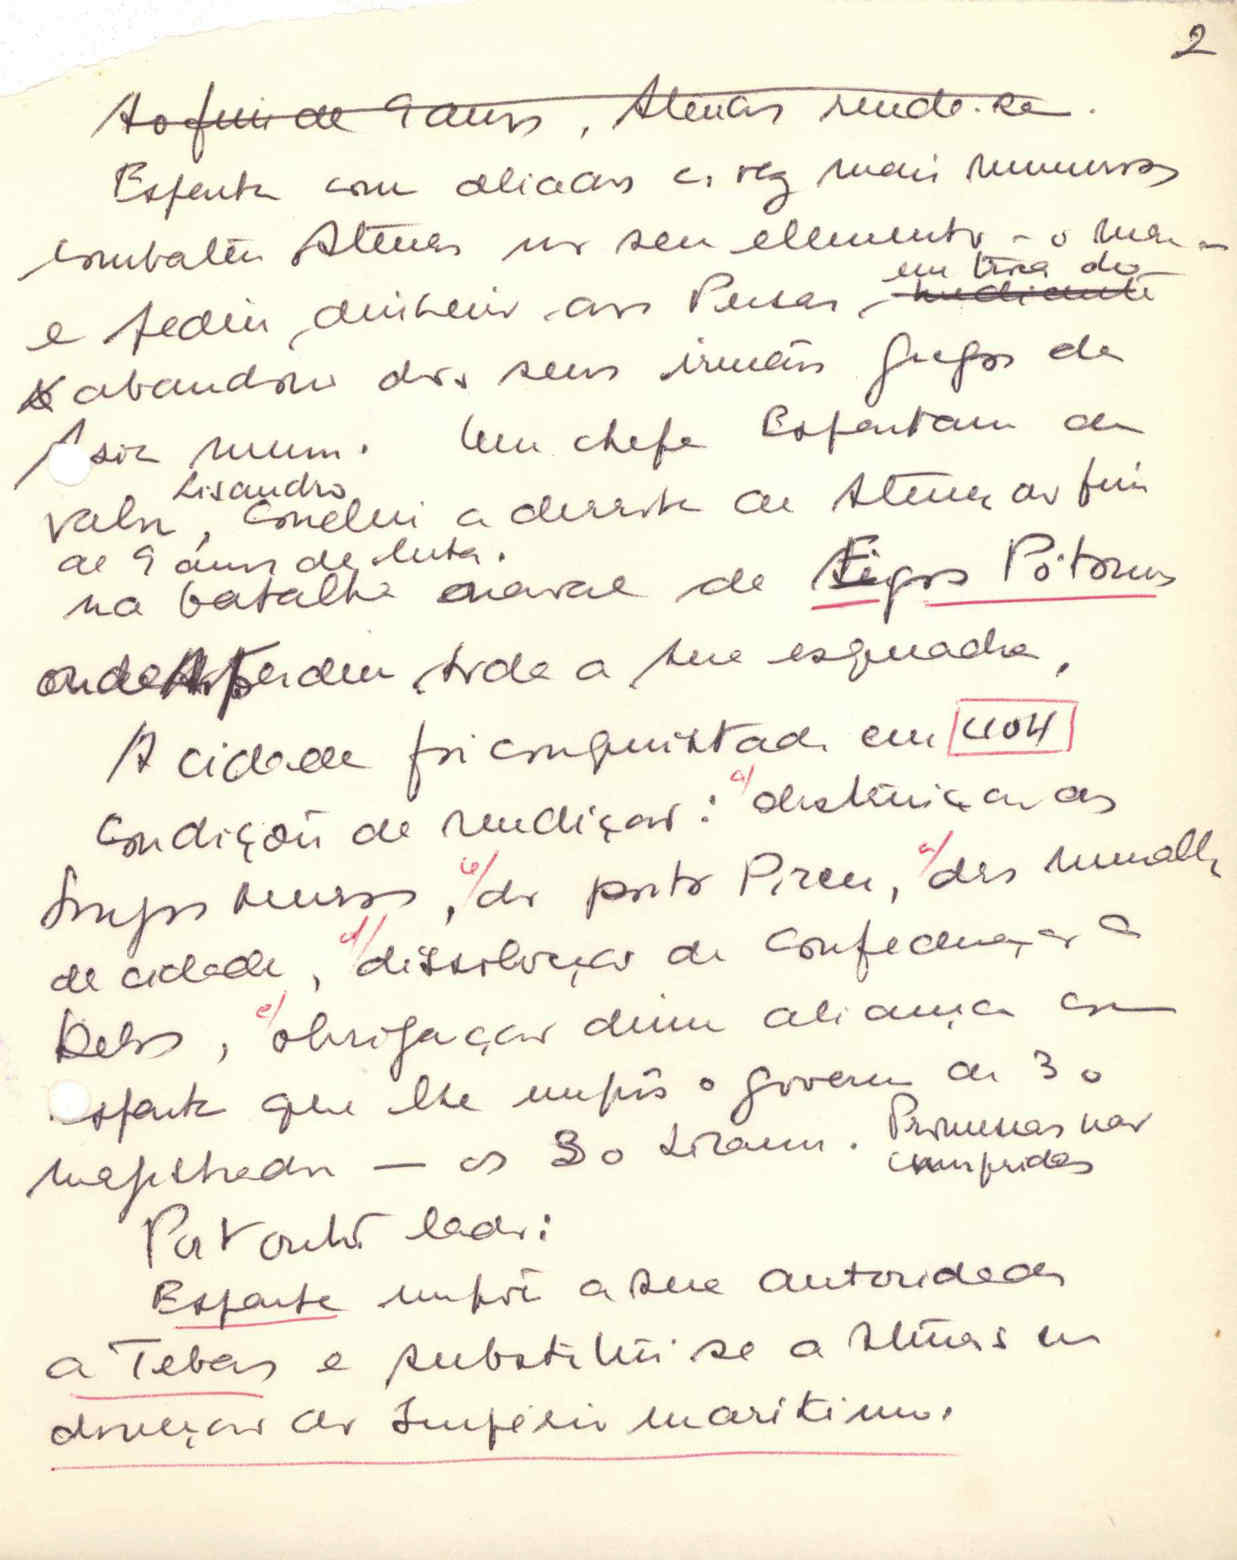 2
Ao fim de 9 anos, Atenas rende-se.
Esparta com aliados cada vez mais numerosos
combateu Atenas no seu elemento - o mar -
em troca do
e pediu dinheiro aos Persas, mediante
abandono dos seus irmãos gregos da
Ásia menor. Um chefe Espartano de
Lisandro
valor, conclui a derrota de Atenas ao fim
de 9 anos de luta.
na batalha naval de Egos Pótamos
onde perdeu toda a sua esquadra.
A cidade foi conquistada em 404
Condições de rendição: a/ destruição dos
longos muros, b/ do porto Pireu, c/ das muralhas
da cidade, d/ dissolução da Confederação de
Delos, e/ obrigação duma aliança com
Esparta que lhe impôs o governo de 30
magistrados — os 30 tiranos. Promessas não
cumpridas
Por outro lado:
Esparta impõe a sua autoridade
a Tebas e substitui-se a Atenas na
direcção do Império marítimo.